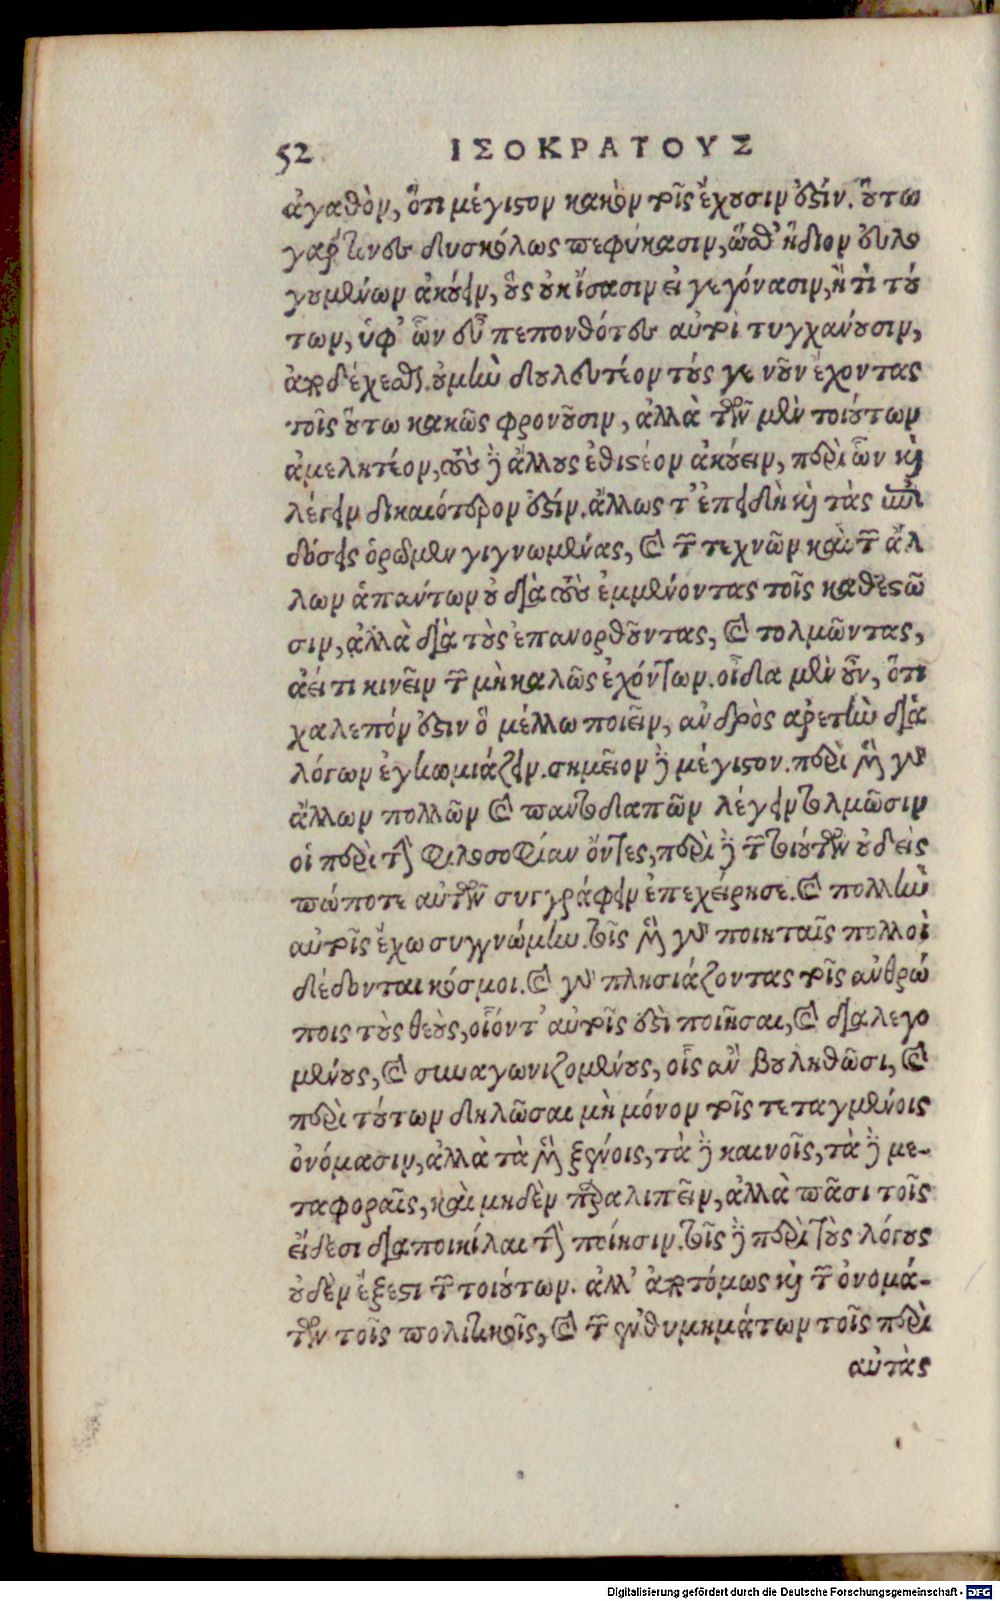 52 ΙΣΟΚΡΑΤΟΥΣ
ἀγαθὸν, ὅτι μέγιστον κακὸν τοῖς ἔχουσιν ὅξίν. οὕτω
γάρ τινες δυσκόλως πεφύκασιν, ὥσθ' ἥδιον εὐλο
γουμένων ἀκούειν, οὓς οὐκ ἴσασιν εἰ γεγόνασιν, ἢ τι τού
των, ὑφ' ὧν εὖ πεπονθότες αὐτοὶ τυγχάνουσιν,
οὐ μὴν δουλευτέον τούς γε νοῦν ἔχοντας
τοῖς οὕτω κακῶς φρονοῦσιν, ἀλλὰ τῶν μὲν τοιούτων
ἀμελητέον, τοὺς δὲ ἄλλους ἐθιστέον ἀκούειν, περὶ ὧν καὶ
λέγειν δικαιότερον ἐστίν. ἄλλως τ' ἐπειδὴ καὶ τὰς ἐπι
δόσεις ὁρῶμεν γιγνωμένας, καὶ τῶν τεχνῶν καὶ τῶν ἄλ
λων ἁπάντων οὐ διὰ τοὺς ἐμμένοντας τοῖς καθεστῶ
σιν, ἀλλὰ διὰ τοὺς ἐπανορθοῦντας, καὶ τολμῶντας,
ἀεί τι κινεῖν τῶν μὴ καλῶς ἐχόντων. οἶδα μὲν οὖν, ὅτι
χαλεπόν ἐστιν ὃ μέλλω ποιεῖν, ἀνδρὸς ἀρετὴν διὰ
λόγων ἐγκωμιάζειν. σημεῖον δὲ μέγιστον. περὶ μὲν γὰρ
ἄλλων πολλῶν καὶ παντοδαπῶν λέγειν τολμῶσιν
οἱ περὶ τὴν φιλοσοφίαν ὄντες, περὶ δὲ τῶν τοιούτων οὐδεὶς
πώποτε αὐτῶν συγγράφειν ἐπεχείρησε. καὶ πολλὴν
αὐτοῖς ἔχω συγγνώμην. τοῖς μὲν γὰρ ποιηταῖς πολλοὶ
δέδονται κόσμοι. καὶ γὰρ πλησιάζοντας τοῖς ἀνθρώ
ποις τοὺς θεοὺς, οἷόν τ' αὐτοῖς ἐστὶ ποιῆσαι, καὶ διαλεγο
μένους, καὶ συναγωνιζομένους, οἷς ἂν βουληθῶσι, καὶ
περὶ τούτων δηλῶσαι μὴ μόνον τοῖς τεταγμένοις
ὀνόμασιν, ἀλλὰ τὰ μὲν ξένοις, τὰ δὲ καινοῖς, τὰ δὲ με-
ταφοραῖς, καὶ μηδὲν παραλιπεῖν, ἀλλὰ πᾶσι τοῖς
εἴδεσι διαποικίλαι τὴν ποίησιν. τοῖς δὲ περὶ τοὺς λόγους
οὐδὲν ἔξεστι τῶν τοιούτων. ἀλλ' ἀποτόμως καὶ τῶν ὀνομά-
των τοῖς πολιτικοῖς, καὶ τῶν ἐνθυμημάτων τοῖς περὶ
αὐτὰς
Digitalisierung gefördert durch die Deutsche Forschungsgemeinschaft - DFG